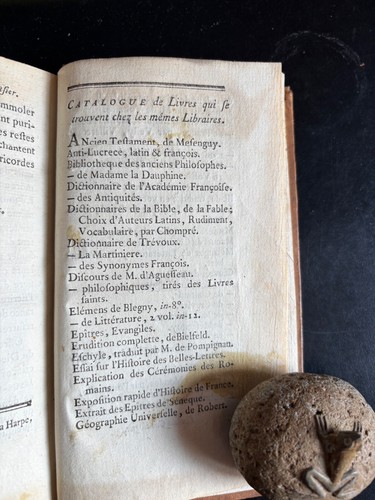 sier.
mmoler
nt puri-
s restes
chantent
ricordes
a Harpe,
CATALOGUE de Livres qui se
trouvent chez les mêmes Libraires.
ANcien Testament, de Mesenguy.
Anti-Lucrece, latin & françois.
Bibliotheque des anciens Philosophes.
— de Madame la Dauphine.
Dictionnaire de l'Académie Françoise.
— des Antiquités.
Dictionnaires de la Bible, de la Fable;
Choix d'Auteurs Latins, Rudiment,
Vocabulaire, par Chompré.
Dictionnaire de Trévoux.
— La Martiniere.
— des Synonymes François.
Discours de M. d'Aguesseau.
— philosophiques, tirés des Livres
saints.
Elémens de Blegny, in-8º.
— de Littérature, 2 vol. in-12.
Epîtres, Evangiles.
Erudition complette, deBielfeld.
Eschyle, traduit par M. de Pompignan.
Essai sur l'Histoire des Belles-Lettres.
Explication des Cérémonies des Ro-
mains.
Exposition rapide d'Histoire de France.
Extrait des Epitres de Séneque.
Géographie Universelle, de Robert.